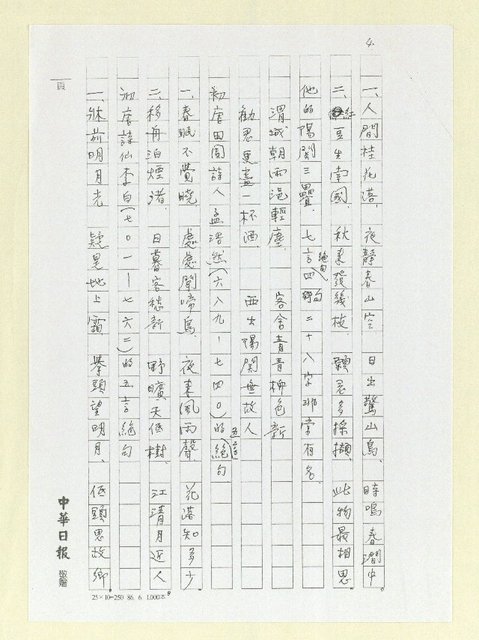 4.
一、人閒桂花落、夜靜春山空 日出驚山鳥、時鳴春澗中
二、紅豆生南國 秋來發幾枝、願君多採擷、此物最相思
他的陽關三疊、七言四句絕句二十八字非常有名
渭城朝雨浥輕塵 客舍青青柳色新
勸君更盡一杯酒 西出陽關無故人
初唐田園詩人孟浩然（六八九－七四〇）的五言絕句
一、春眠不覺曉 處處聞啼鳥、夜來風雨聲 花落知多少
二、移舟泊煙渚、日暮客愁新 野曠天低樹、江清月近人
初唐詩仙李白（七〇一－七六二）的五言絕句
一、牀前明月光 疑是地上霜、舉頭望明月、低頭思故鄉
頁
中華日報
25×10=250 86. 6. 1,000本